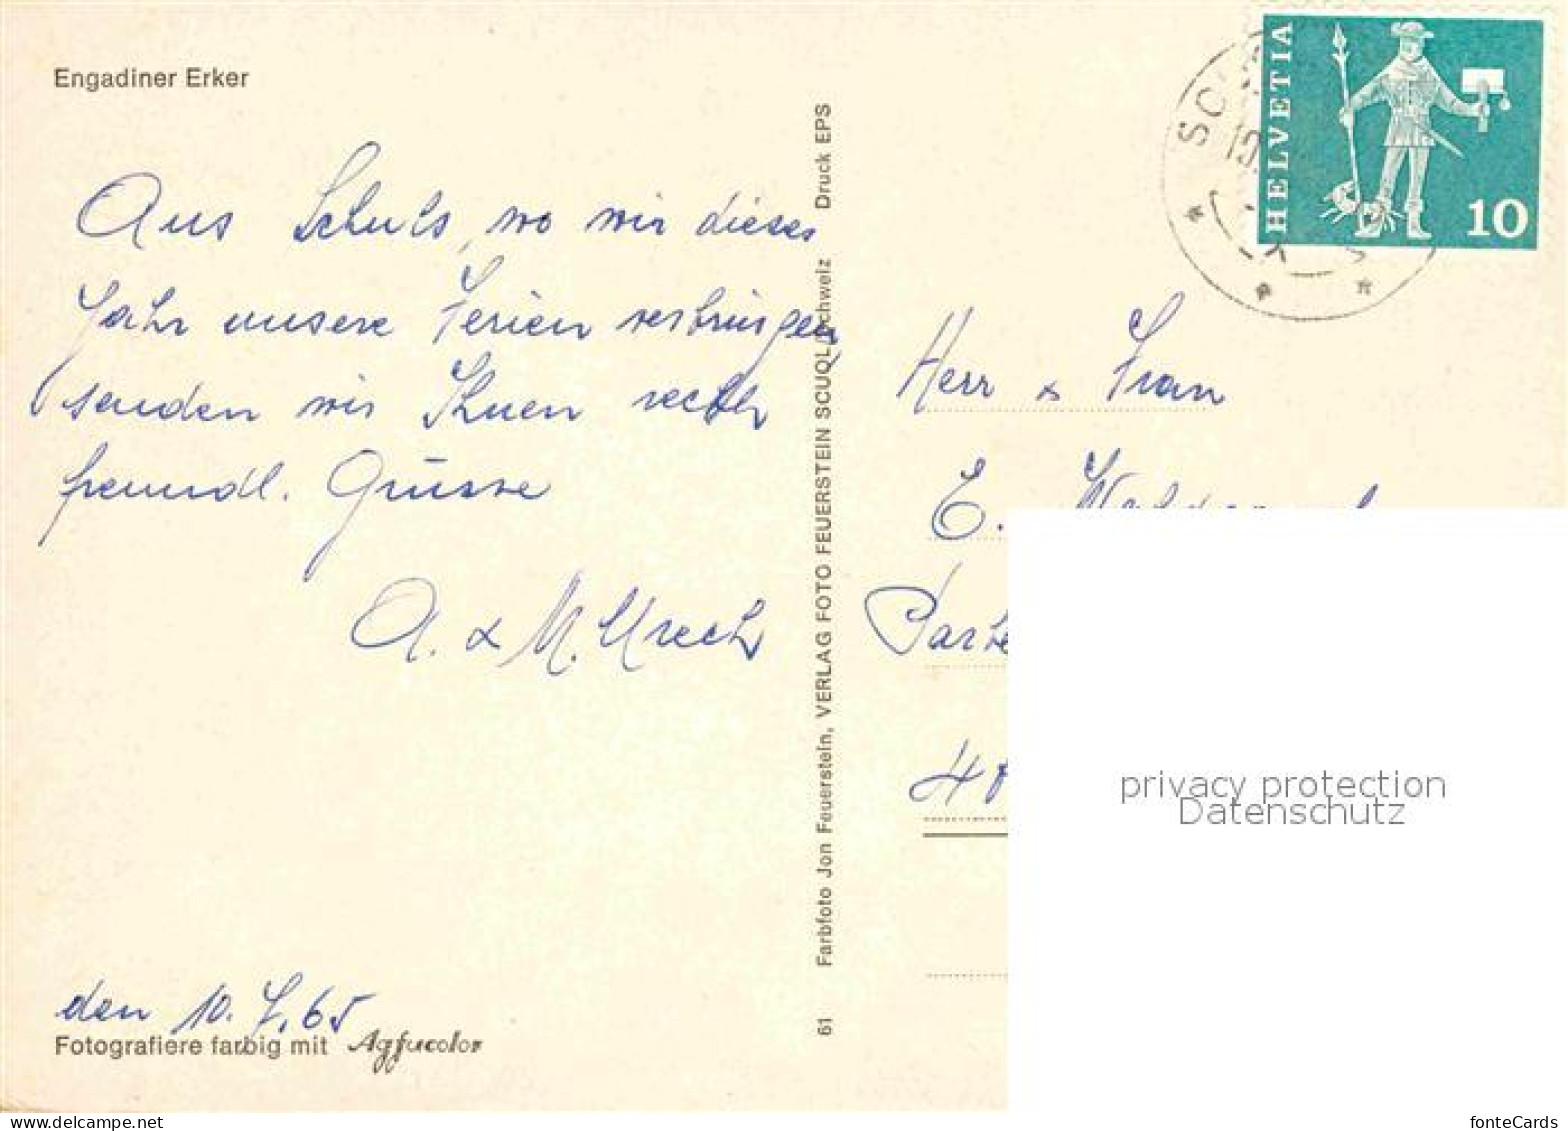 Engadiner Erker
Aus Schuls, wo wir dieses
Jahr unsere Ferien verbringen
senden wir Ihnen recht
freundl. Grüsse
A. & M. Urech
den 10. 7. 65
Fotografiere farbig mit Agfacolor
61 Farbfoto Jon Feuerstein, VERLAG FOTO FEUERSTEIN SCUOL/Schweiz Druck EPS
HELVETIA
10
Herr & Frau
E.
privacy protection
Datenschutz
fonteCards